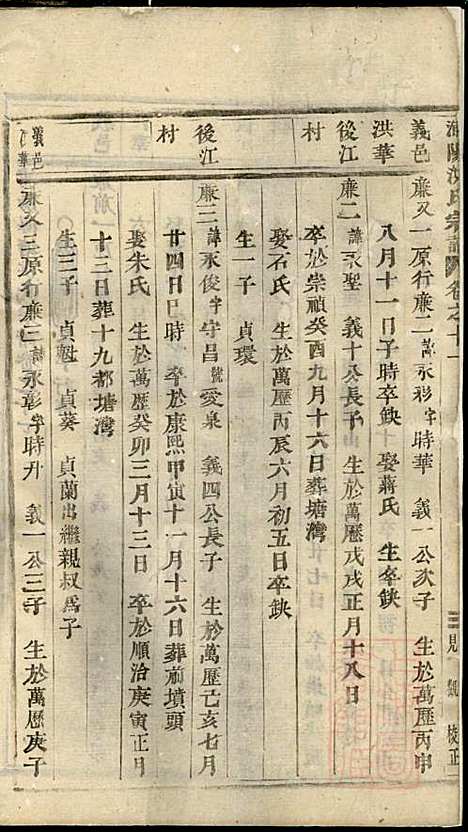 洪氏宗譜 卷之十一
義邑 廉又一原行廉二諱永彩字時華 義一公次子 生於萬歷丙申
洪華 八月十一日子時卒缺 娶蔣氏 生卒缺
後江 廉二諱永聖 義十公長子 生於萬歷戊戌正月十八日
村 卒於崇禎癸酉九月十六日葬塘灣
娶石氏 生於萬歷丙辰六月初五日卒缺
生一子 貞環
後江 廉二諱永俊字守昌號愛泉 義四公長子 生於萬歷己亥七月
村 廿四日巳時 卒於康熙甲寅十一月十六日葬前墳頭
娶朱氏 生於萬歷癸卯三月十三日 卒於順治庚寅正月
十三日葬十九都塘灣
生三子 貞魁 貞葵 貞蘭出繼親叔為子
義邑 廉又三原行廉三諱永彰字時升 義一公三子 生於萬歷庚子